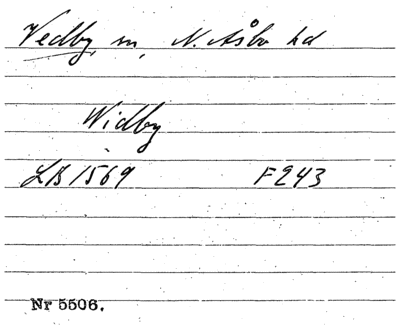 Vedby, sn, N. Åsbo hd
Widby
LB 1569 F 243
Nr 5506.